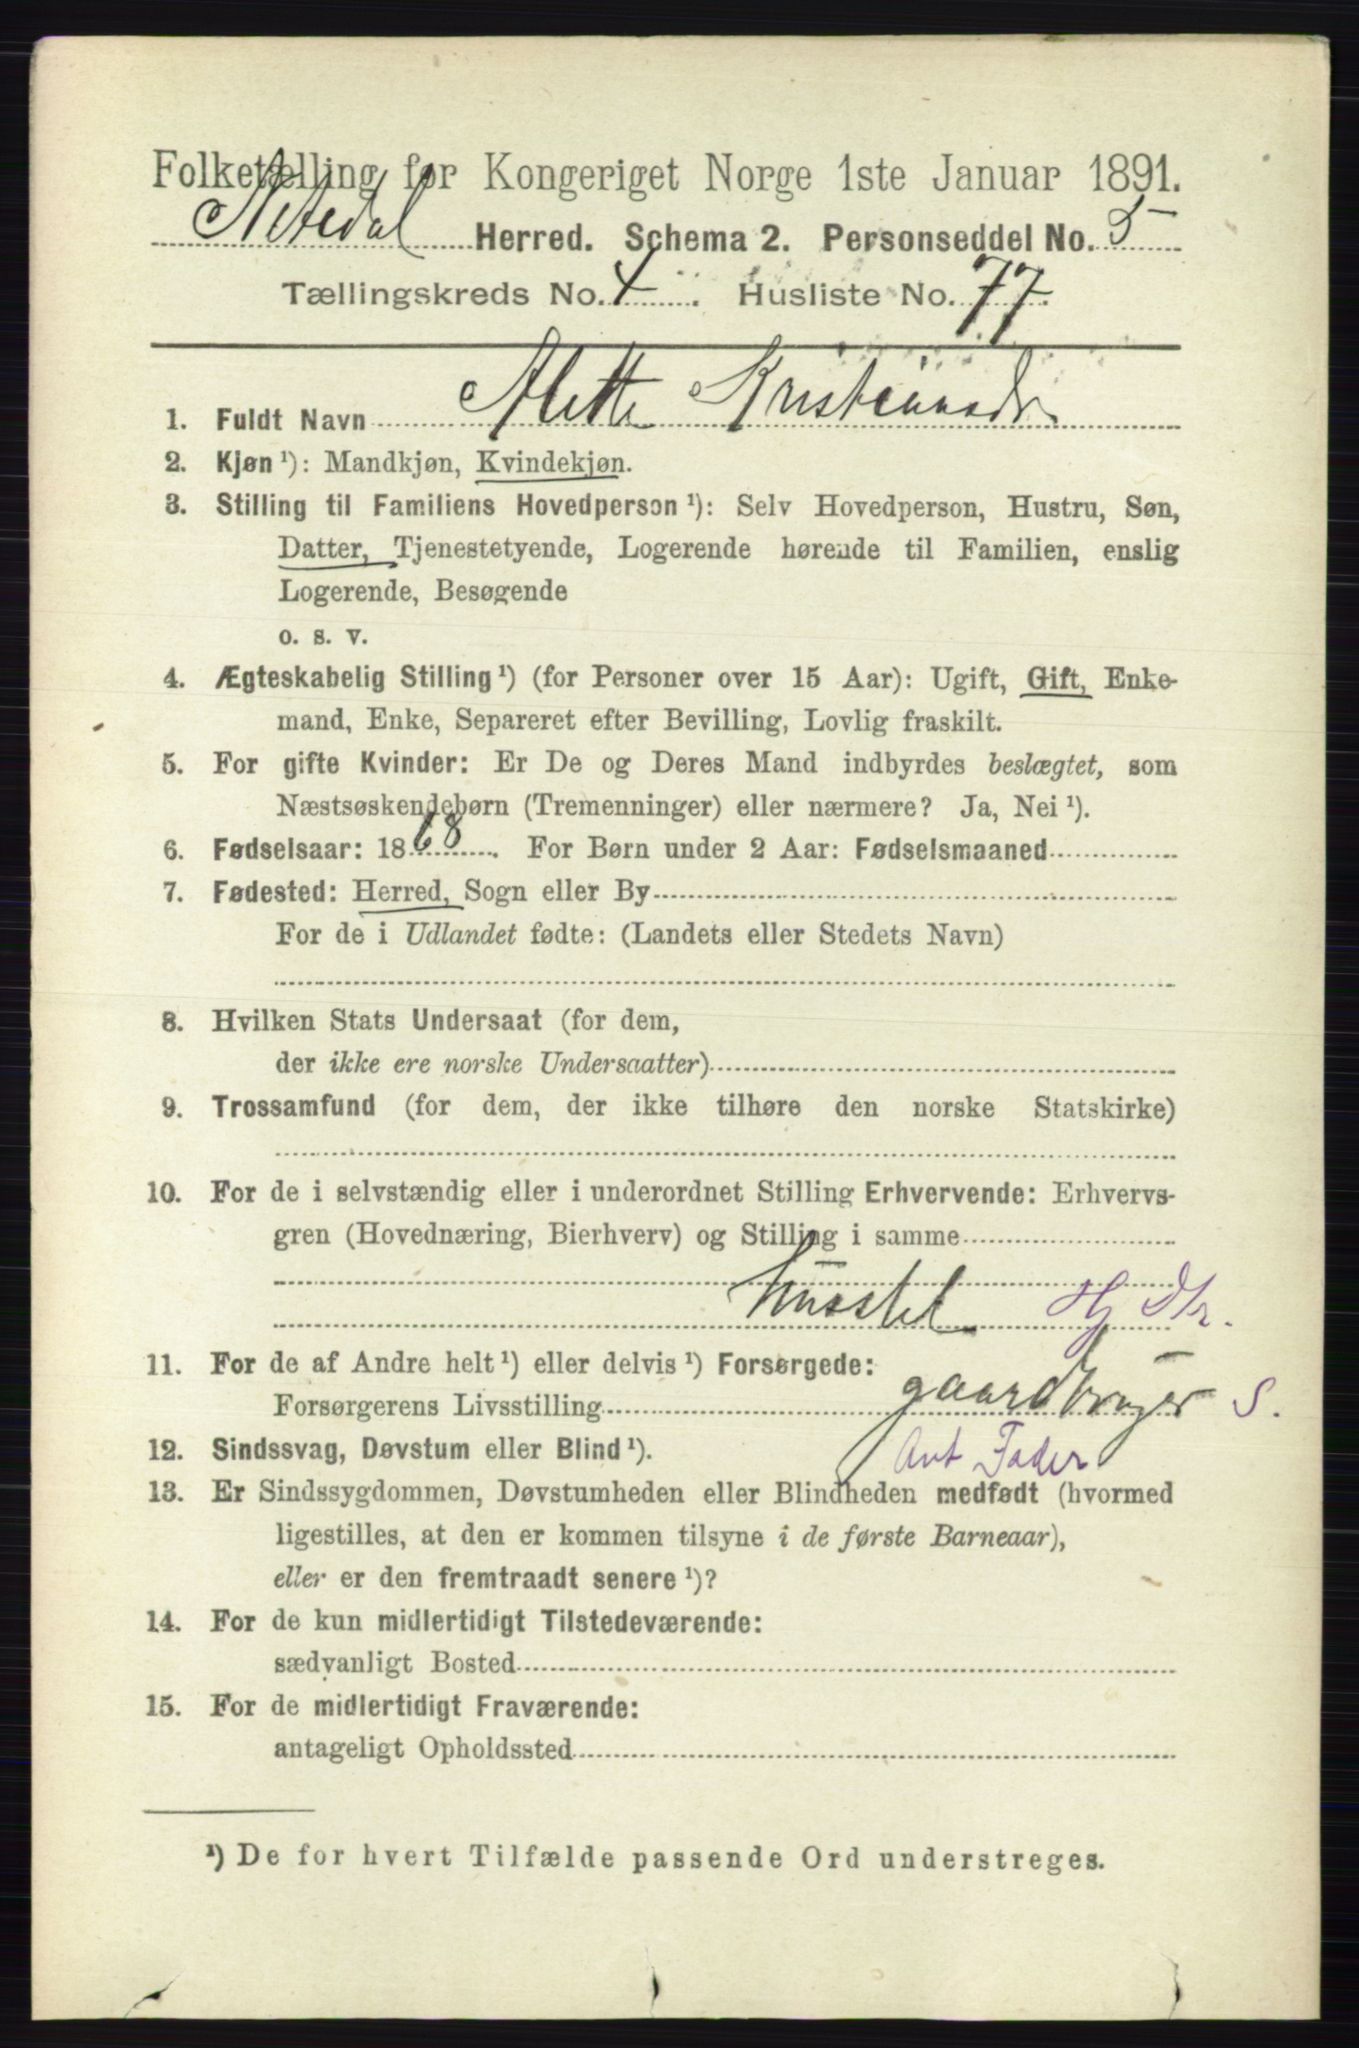 Folketælling for Kongeriget Norge 1ste Januar 1891.
Nitedal Herred. Schema 2. Personseddel No. 5
Tællingskreds No. 4. Husliste No. 77.
1. Fuldt Navn Alette Kristiansdr
2. Kjøn ¹): Mandkjøn, Kvindekjøn.
3. Stilling til Familiens Hovedperson ¹): Selv Hovedperson, Hustru, Søn,
Datter, Tjenestetyende, Logerende hørende til Familien, enslig
Logerende, Besøgende
o. s. v.
4. Ægteskabelig Stilling ¹) (for Personer over 15 Aar): Ugift, Gift, Enke-
mand, Enke, Separeret efter Bevilling, Lovlig fraskilt.
5. For gifte Kvinder: Er De og Deres Mand indbyrdes beslægtet, som
Næstsøskendebørn (Tremenninger) eller nærmere? Ja, Nei ¹).
6. Fødselsaar: 1868. For Børn under 2 Aar: Fødselsmaaned
7. Fødested: Herred, Sogn eller By
For de i Udlandet fødte: (Landets eller Stedets Navn)
8. Hvilken Stats Undersaat (for dem,
der ikke ere norske Undersaatter)
9. Trossamfund (for dem, der ikke tilhøre den norske Statskirke)
10. For de i selvstændig eller i underordnet Stilling Erhvervende: Erhvervs-
gren (Hovednæring, Bierhverv) og Stilling i samme
husstel Hj Dtr.
11. For de af Andre helt ¹) eller delvis ¹) Forsørgede:
Forsørgerens Livsstilling gaardbruger S.
12. Sindssvag, Døvstum eller Blind ¹). Ant Fader
13. Er Sindssygdommen, Døvstumheden eller Blindheden medfødt (hvormed
ligestilles, at den er kommen tilsyne i de første Barneaar),
eller er den fremtraadt senere ¹)?
14. For de kun midlertidigt Tilstedeværende:
sædvanligt Bosted
15. For de midlertidigt Fraværende:
antageligt Opholdssted
¹) De for hvert Tilfælde passende Ord understreges.